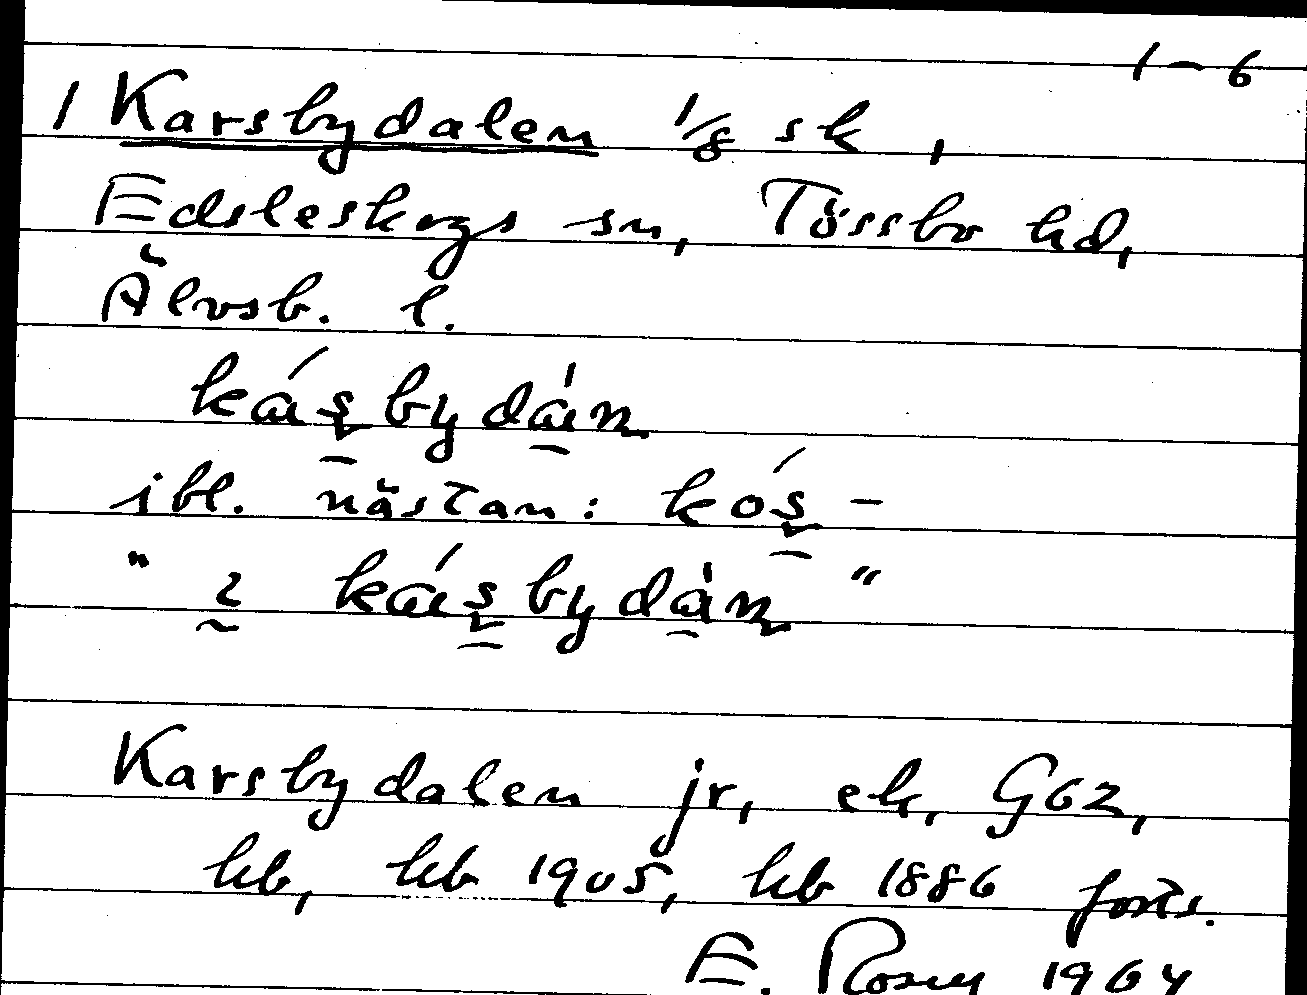 1-6
1 Karsbydalen 1/8 sk,
Edsleskogs sn, Tössbo hd,
Älvsb. l.
káșbydàṇ
ibl. nästan: kóș-
" káșbydàṇ "
Karsbydalen jr, ek, G62,
kb, kb 1905, hb 1886 forts.
E. Rosen 1964